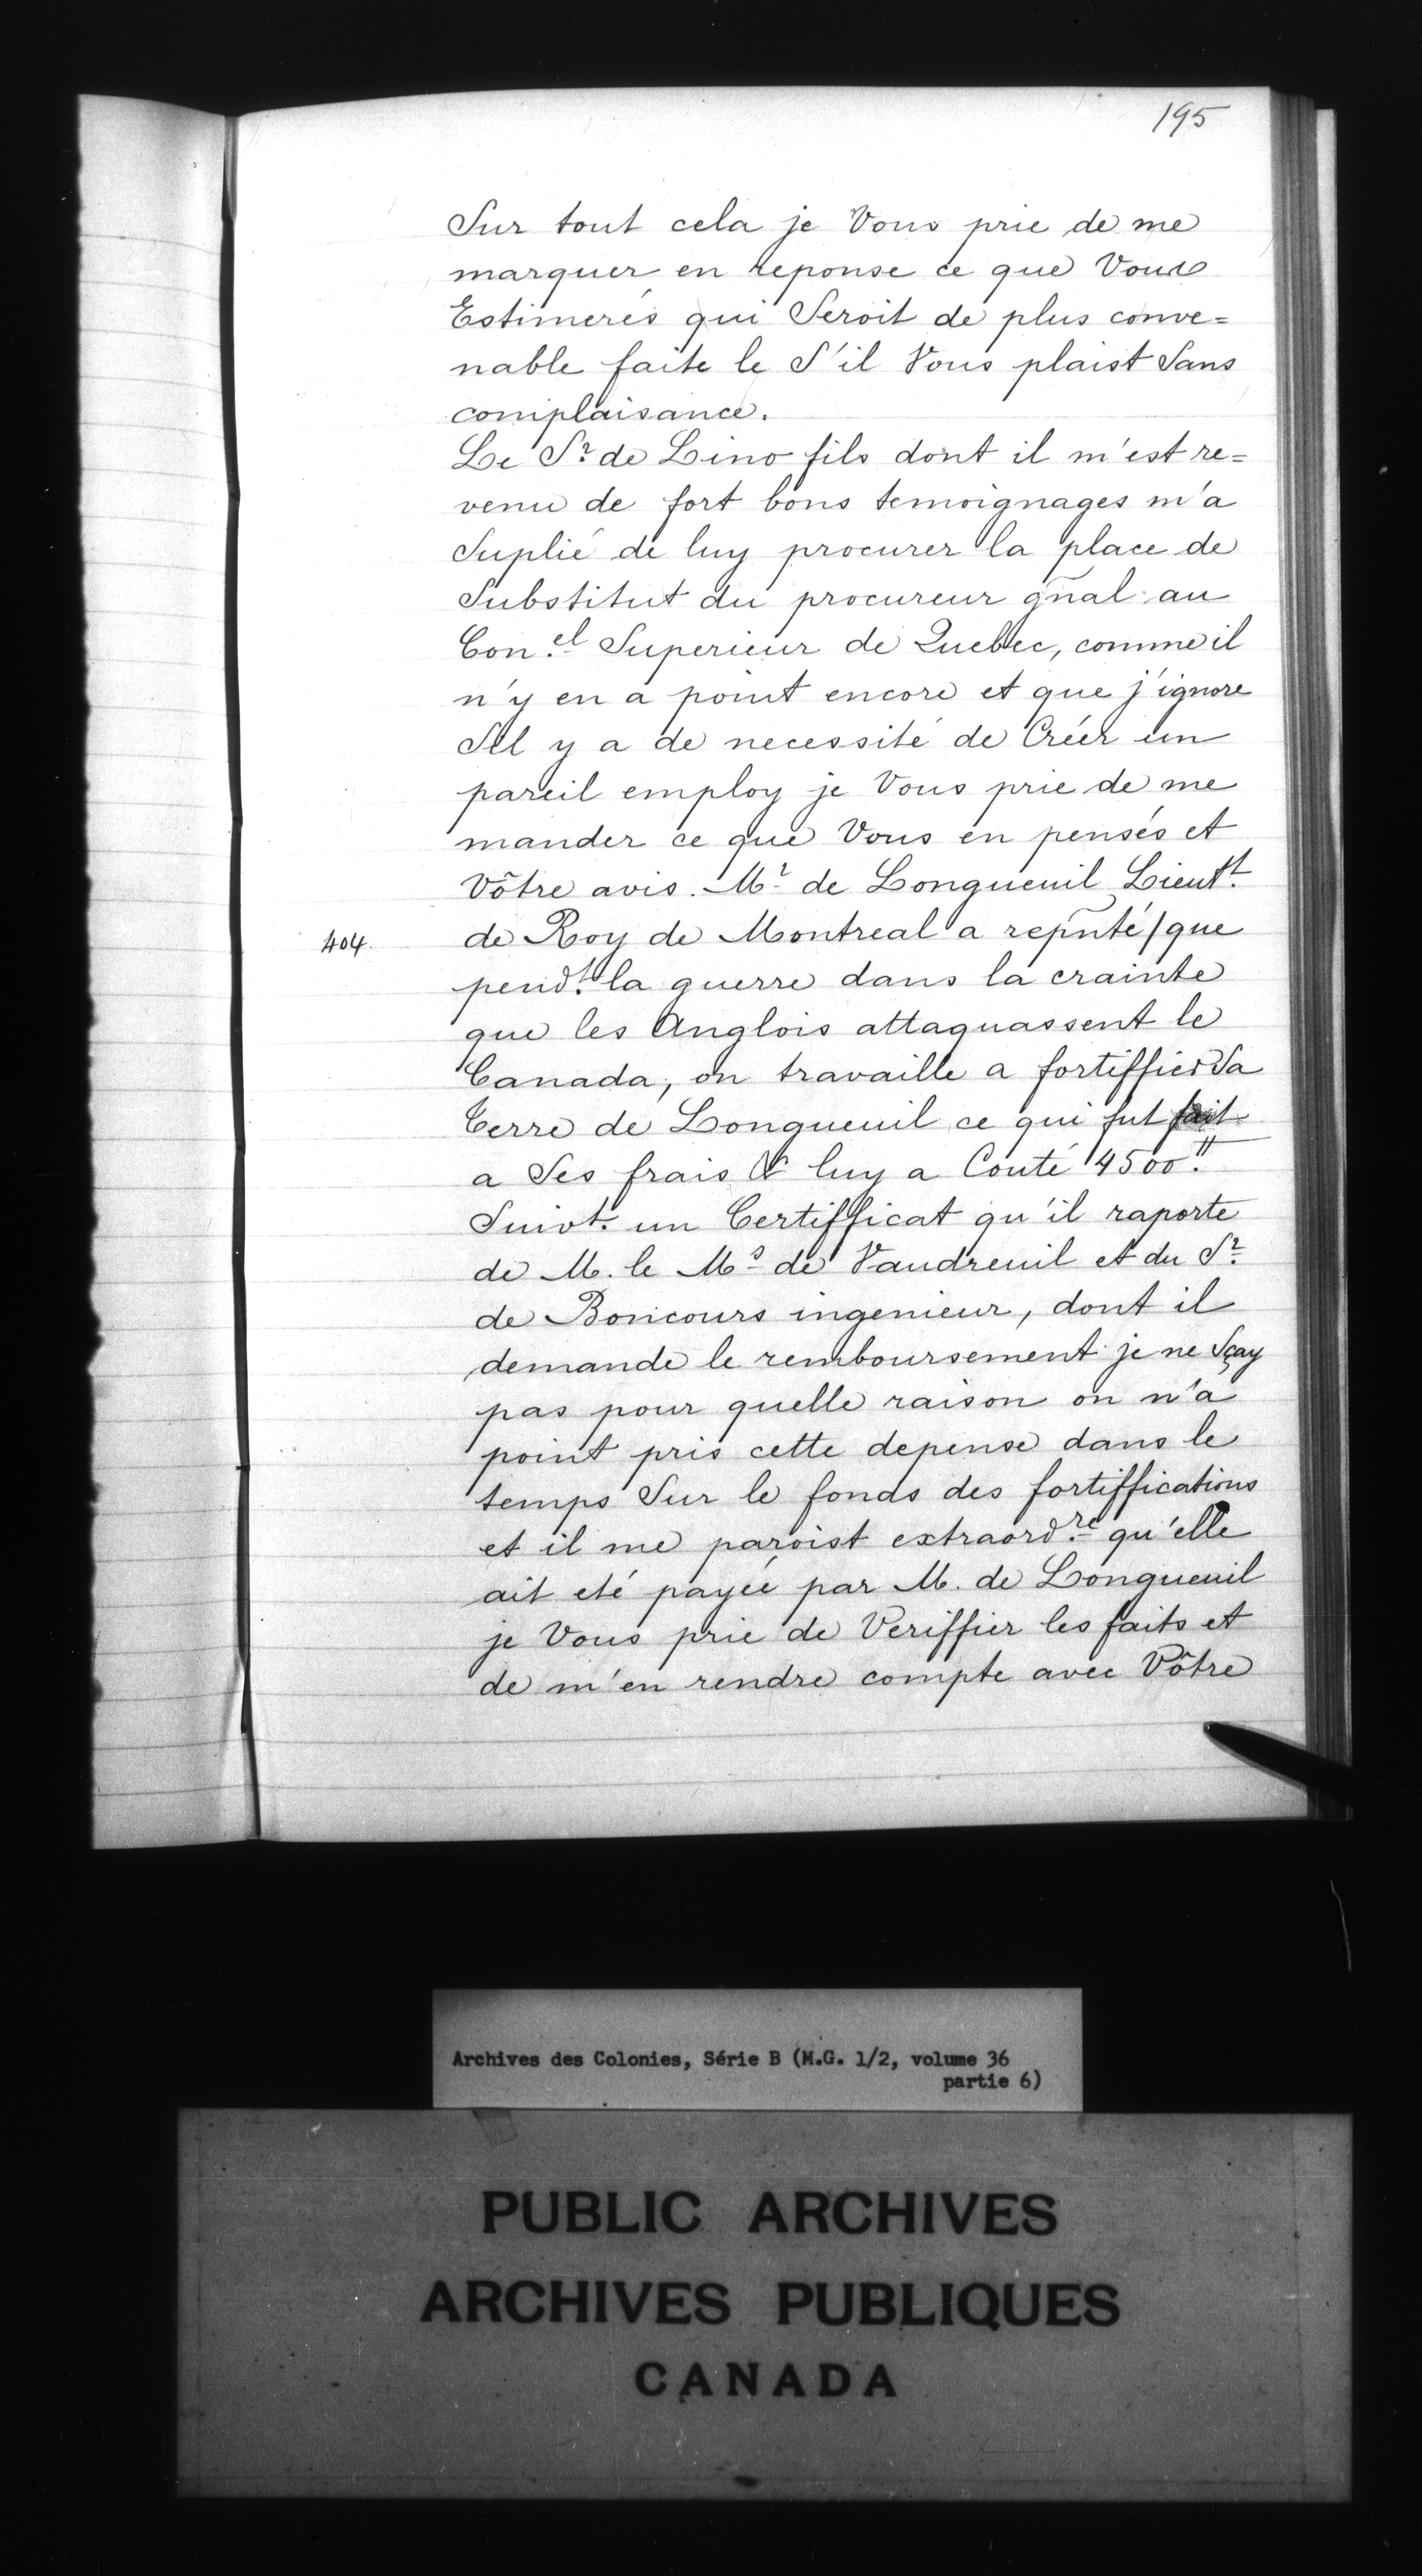 195
Sur tout cela je Vous prie de me
marquer en reponse ce que Vous
Estimerés qui Seroit de plus conve=
nable faite le S'il Vous plaist Sans
complaisance.
Le Sr de Lino fils dont il m'est re=
venu de fort bons temoignages m'a
Suplié de luy procurer la place de
Substitut du procureur gñal au
Con.el Superieur de Quebec, comme il
n'y en a point encore et que j'ignore
Sil y a de necessité de Créer un
pareil employ je Vous prie de me
mander ce que Vous en pensés et
Vôtre avis. Mr de Longueuil Lieutt.
404. de Roy de Montreal a repñté/que
pendt. la guerre dans la crainte
que les Anglois attaquassent le
Canada, on travaille a fortiffier Sa
Terre de Longueuil ce qui fut fait
a Ses frais & luy a Couté 4500.tt
Suivt. un Certifficat qu'il raporte
de M. le Ms de Vaudreuil et du Sr.
de Boncours ingenieur, dont il
demande le remboursement je ne Sçay
pas pour quelle raison on n'a
point pris cette depense dans le
temps Sur le fonds des fortiffications
et il me paroist extraord.re qu'elle
ait eté payée par M. de Longueuil
je Vous prie de Veriffier les faits et
de m'en rendre compte avec Vôtre
Archives des Colonies, Série B (M.G. 1/2, volume 36
partie 6)
PUBLIC ARCHIVES
ARCHIVES PUBLIQUES
CANADA